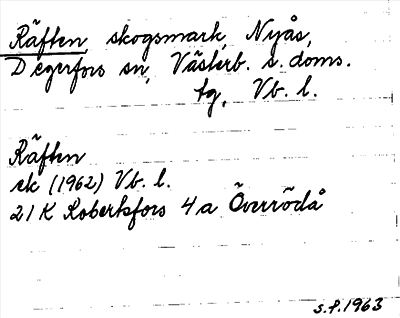 Räften, skogsmark, Nyås,
Degerfors sn, Västerb. s. doms.
tg, Vb. l.
Räften
ek (1962) Vb. l.
21 K Robertsfors 4 a Överrödå
S.P. 1963